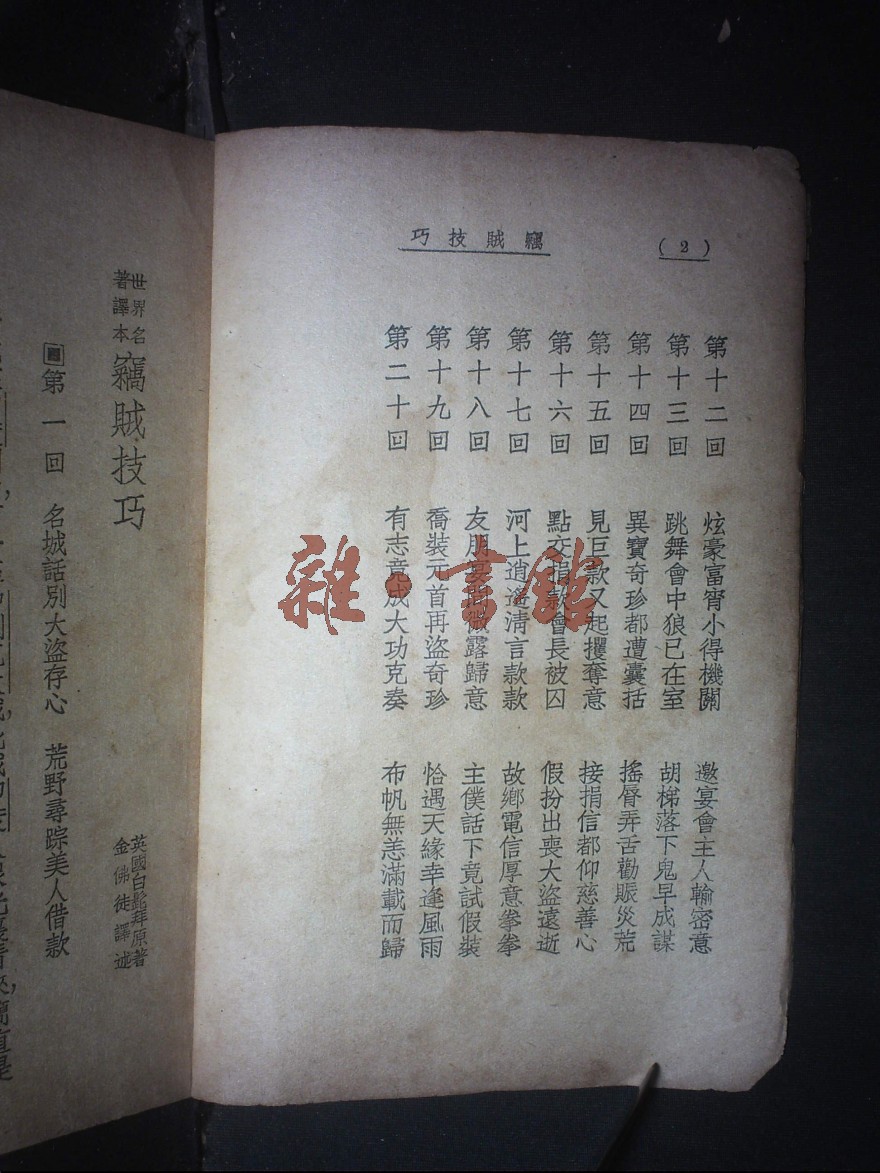 (2)
竊賊技巧
第十二回 炫豪富宵小得機關 邀宴會主人輸密意
第十三回 跳舞會中狼已在室 胡梯落下鬼早成謀
第十四回 異寶奇珍都遭囊括 搖脣弄舌勸賑災荒
第十五回 見巨款又起攫奪意 接捐信都仰慈善心
第十六回 點交捐款會長被囚 假扮出喪大盜遠逝
第十七回 河上逍遙清言款款 故鄉電信厚意拳拳
第十八回 友朋宴 微露歸意 主僕話下竟試假裝
第十九回 喬裝元首再盜奇珍 恰遇天緣幸逢風雨
第二十回 有志竟成大功克奏 布帆無恙滿載而歸
世界名著譯本 竊賊技巧
英國白髭拜原著
金佛徒譯述
第一回 名城話別大盜存心 荒野尋踪美人借款
雜·書館